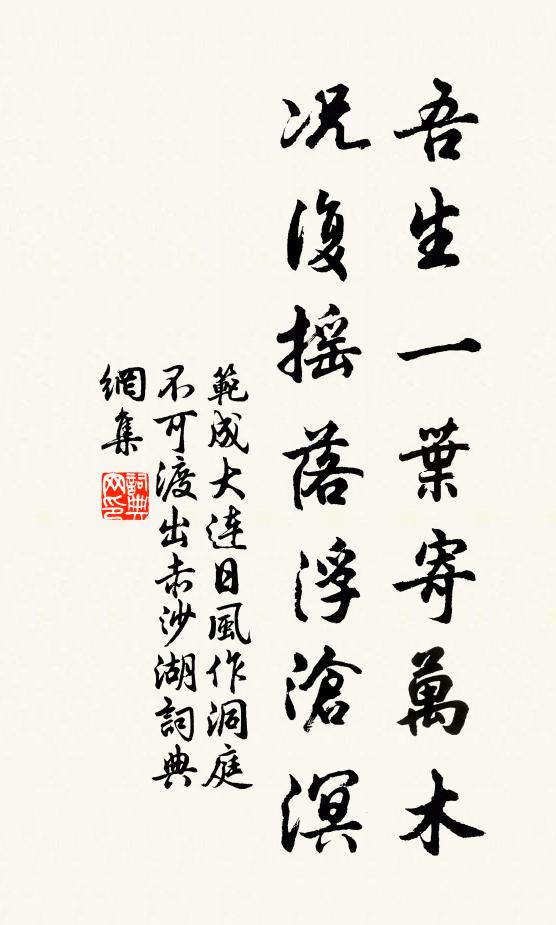 吾生一葉寄萬木
况復摇落浮滄溟
範成大連日風作洞庭
不可渡出赤沙湖詞典
網集
詞典
网印